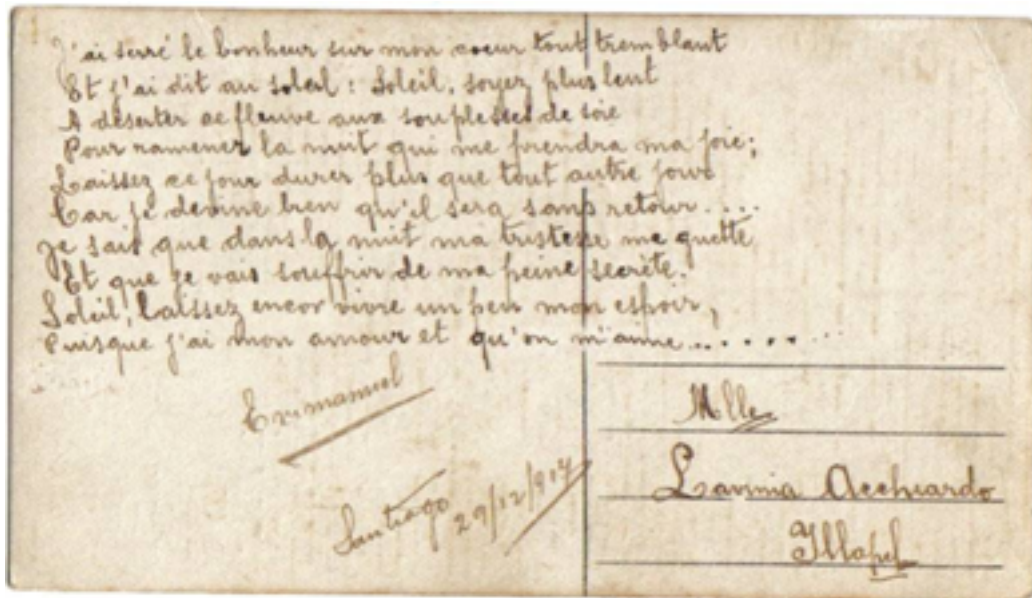 J'ai serré le bonheur sur mon coeur tout tremblant
Et j'ai dit au soleil : Soleil, soyez plus lent
A déserter ce fleuve aux souplesses de soie
Pour ramener la nuit qui me prendra ma joie;
Laissez ce jour durer plus que tout autre jour
Car je devine bien qu'il sera sans retour....
Je sais que dans la nuit ma tristesse me guette
Et que je vais souffrir de ma peine secrète.
Soleil, laissez encor vivre un peu mon espoir,
Puisque j'ai mon amour et qu'on m'aime.........
Emmanuel
Santiago 29/12/917
Mlle
Lavinia Acchiardo
Illapel